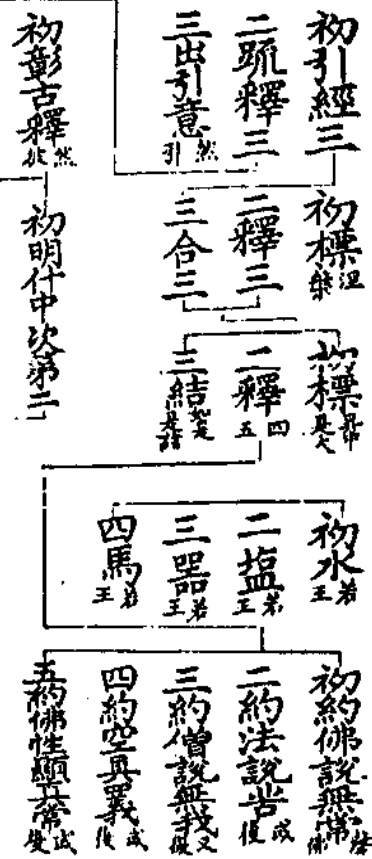 初引經三
二疏釋三
三出引意 然引
初彰古釋 然故
初標 涅槃
二釋三
三合三
初明什中次第二
初標
二釋 四五
三結
初水 若王
二塩 若王
三器 若王
四馬 若王
初約佛說無常
二約法說苦 或復
三約僧說無我 又復
四約空具義 或復
五約佛性顯真常 或